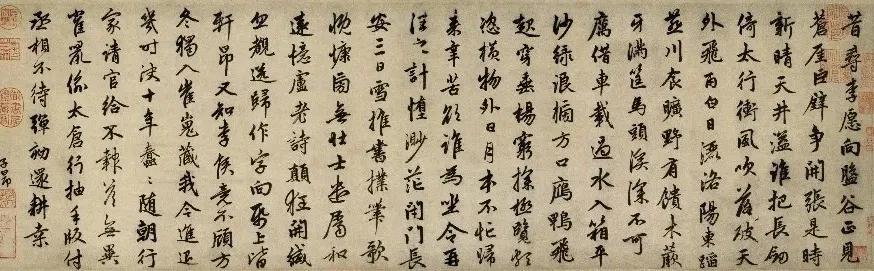 昔尋李愿向盤谷正見
蒼崖巨壁爭開張是時
新晴天井溢誰把長劍
倚太行衝風吹落破天
外飛雨白日灑洛陽東蹈
燕川食曠野有饋木蕨
牙滿筐馬頭溪深不可
厲借車載過水入箱平
沙綠浪榜方口鴈鴨飛
起穿垂楊窮探極覽頗
恣橫物外日月本不忙歸
來辛苦欲誰為坐令再
往之計墮渺茫閉門長
安三日雪推書撲筆歌
慨慷旁無壯士遣屬和
遠憶盧老詩顛狂開緘
忽覩送歸作字向紙上皆
軒昂又知李侯竟不顧方
冬獨入崔嵬藏我今進退
幾時決十年蠢〻隨朝行
家請官給不報答無異
雀鼠偷太倉行抽手版付
丞相不待彈劾還耕桑
子昂